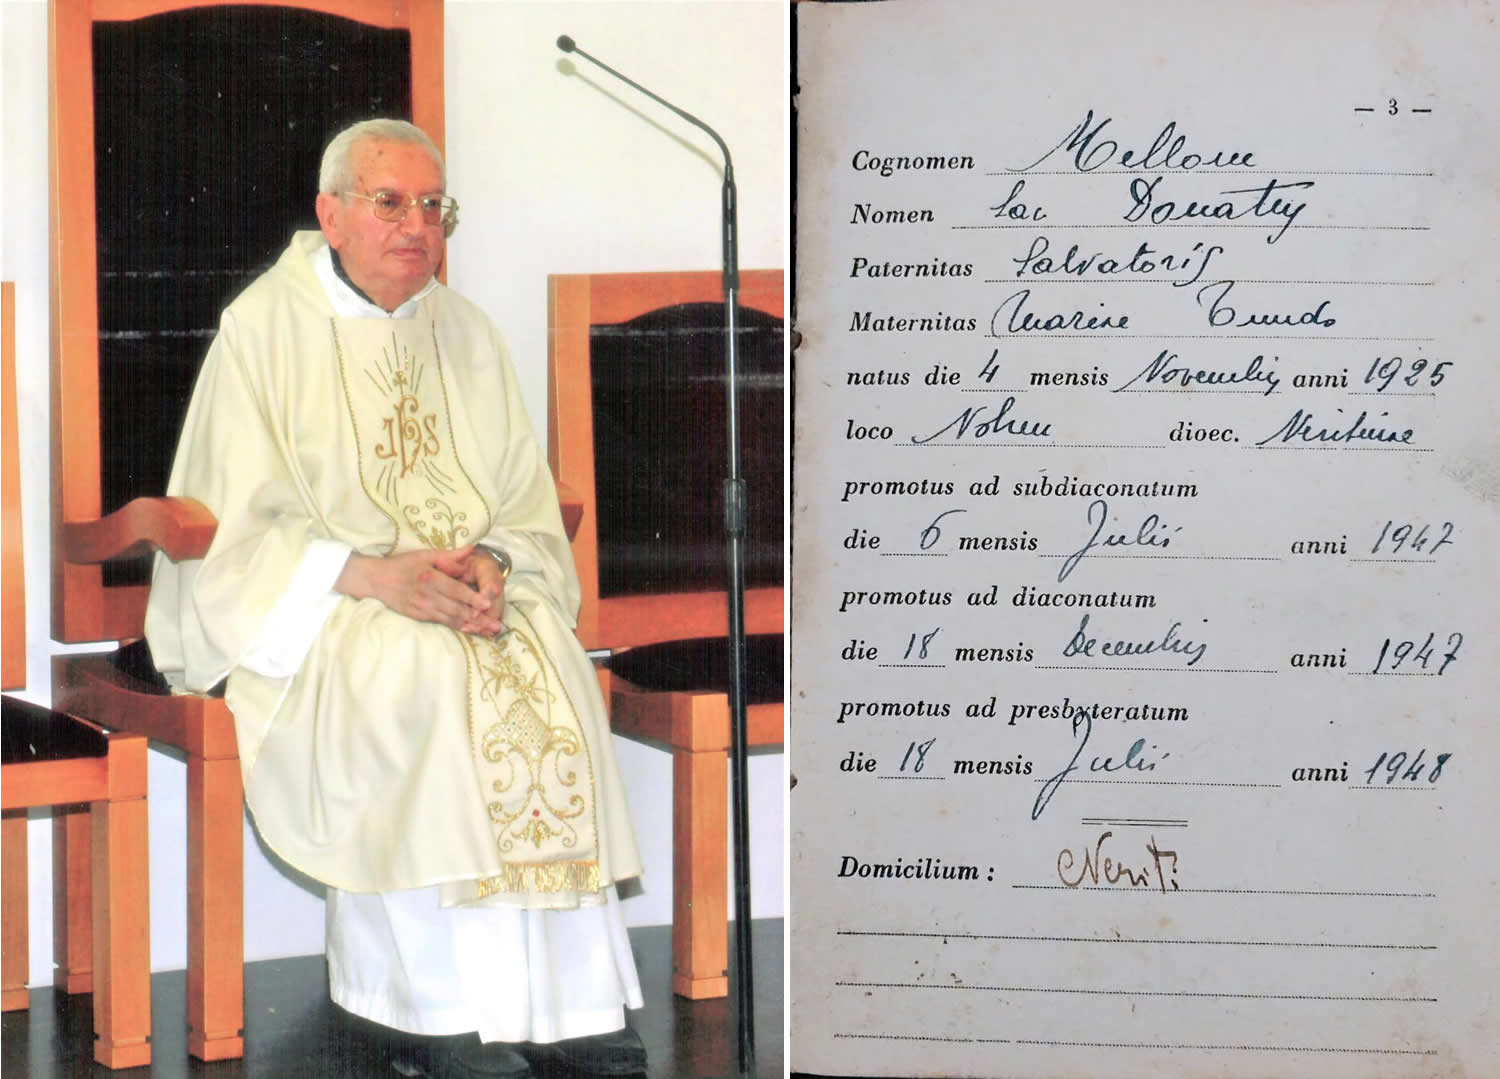 JHS
— 3 —
Cognomen Mellone
Nomen Sac Donatus
Paternitas Salvatoris
Maternitas Mariae Tundo
natus die 4 mensis Novembris anni 1925
loco Nohen dioec. Neritinae
promotus ad subdiaconatum
die 6 mensis Julii anni 1947
promotus ad diaconatum
die 18 mensis Decembris anni 1947
promotus ad presbyteratum
die 18 mensis Julii anni 1948
Domicilium : Neriti